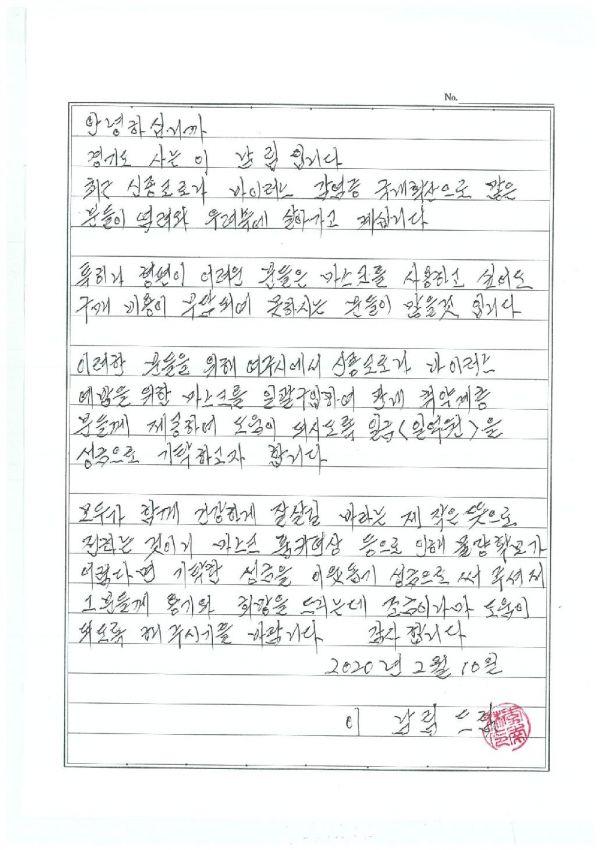 No.
안녕하십니까
경기도 사는 이 남림 입니다
최근 신종코로나 바이러스 감염증 국내확산으로 많은
분들이 염려와 우려속에 살아가고 계십니다
특히나 형편이 어려운 분들은 마스크를 사용하고 싶어도
구매 비용이 부담되어 못하시는 분들이 많을것 입니다
이러한 분들을 위해 여주시에서 신종코로나 바이러스
예방을 위한 마스크를 일괄구입하여 관내 취약계층
분들께 제공하여 도움이 되시도록 일금<일억원>을
성금으로 기탁하고자 합니다
모두가 함께 건강하게 잘살길 바라는 제 작은 뜻으로
전하는 것이니 마스크 품귀현상 등으로 인해 물량확보가
어렵다면 기탁한 성금을 이웃돕기 성금으로 써 주셔서
그분들께 용기와 희망을 드리는데 조금이나마 도움이
되도록 해 주시기를 바랍니다 감사합니다
2020년 2월 10일
이 남림 드림